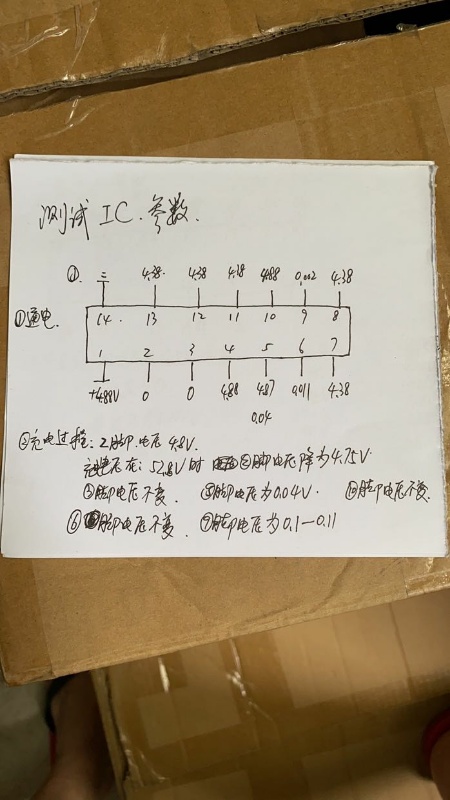 测试IC.参数.
4.38. 4.38 4.38 4.88 0.002 4.38
①通电. 14. 13 12 11 10 9 8
1 2 3 4 5 6 7
+4.88V 0 0 4.88 4.87 0.011 4.38
0.04
②充电过程:2脚.电压4.8V.
压在:52.8V时 ②脚电压降为4.75V.
③脚电压不变. ⑤脚电压为0.04V. ⑩脚电压不变.
⑥脚电压不变. ⑦脚电压为0.1-0.11